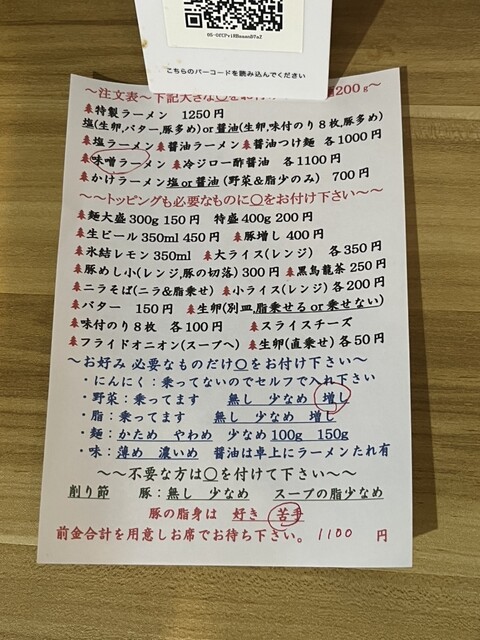 こちらのバーコードを読み込んでください
〜注文表〜下記大きな〇をお付け 200g〜
特製ラーメン 1250円
塩(生卵,バター,豚多め)or醤油(生卵,味付のり8枚,豚多め)
塩ラーメン 醤油ラーメン 醤油つけ麺 各1000円
味噌ラーメン 冷ジロー酢醤油 各1100円
かけラーメン塩or醤油(野菜&脂少のみ) 700円
〜〜トッピングも必要なものに〇をお付け下さい〜〜
麺大盛300g150円 特盛400g200円
生ビール350ml450円 豚増し400円
氷結レモン350ml 大ライス(レンジ) 各350円
豚めし小(レンジ,豚の切落)300円 黒烏龍茶250円
ニラそば(ニラ&脂乗せ) 小ライス(レンジ)各200円
バター 150円 生卵(別皿,脂乗せるor乗せない)
味付のり8枚 各100円 スライスチーズ
フライドオニオン(スープへ) 生卵(直乗せ)各50円
〜お好み 必要なものだけ〇をお付け下さい〜
・にんにく:乗ってないのでセルフで入れ下さい
・野菜:乗ってます 無し 少なめ 増し
・脂:乗ってます 無し 少なめ 増し
・麺:かため やわめ 少なめ100g 150g
・味:薄め 濃いめ 醤油は卓上にラーメンたれ有
〜〜不要な方は〇を付けて下さい〜〜
削り節 豚:無し 少なめ スープの脂少なめ
豚の脂身は 好き 苦手
前金合計を用意しお席でお待ち下さい。1100 円